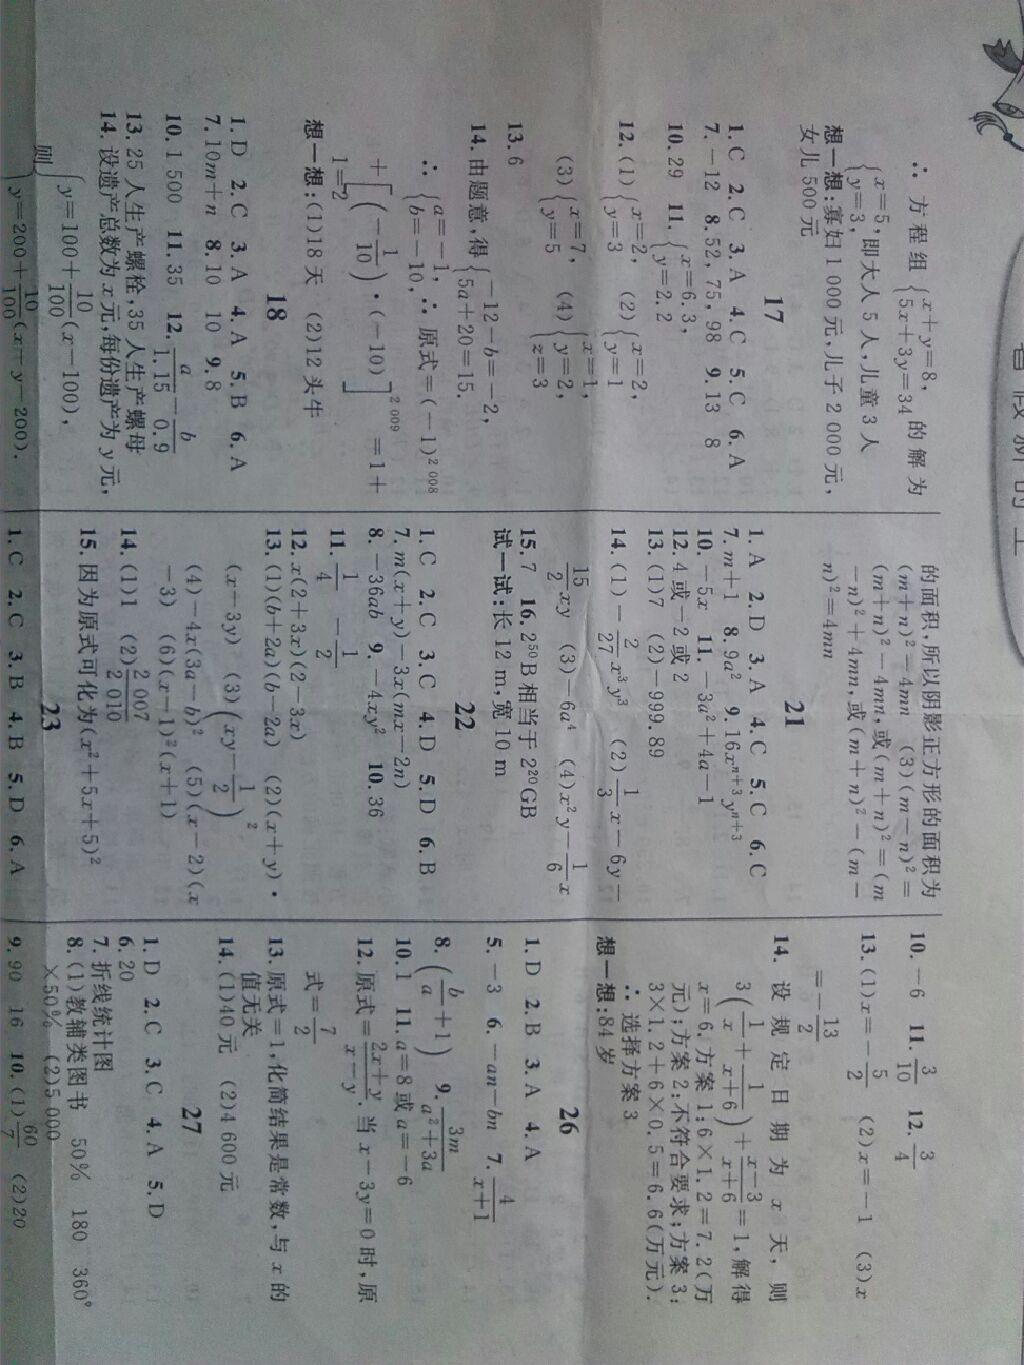 暑假新时空
∴ 方程组{x+y=8, 5x+3y=34 的解为
{x=5, y=3, 即大人 5 人,儿童 3 人
想一想:寡妇 1 000 元,儿子 2 000 元,
女儿 500 元
17
1. C 2. C 3. A 4. C 5. C 6. A
7. -12 8. 52,75,98 9. 13 8
10. 29 11. {x=6.3, y=2.2
12. (1){x=2, y=3 (2){x=2, y=1
(3){x=7, y=5 (4){x=1, y=2, z=3
13. 6
14. 由题意,得{-12-b=-2, 5a+20=15.
∴ {a=-1, b=-10, ∴ 原式=(-1)^{2 008}
+[(-1/10)·(-10)]^{2 009}=1+
1=2
想一想:(1)18 天 (2)12 头牛
18
1. D 2. C 3. A 4. A 5. B 6. A
7. 10m+n 8. 10 10 9. 8
10. 1 500 11. 35 12. a/1.15-b/0.9
13. 25 人生产螺栓,35 人生产螺母
14. 设遗产总数为 x 元,每份遗产为 y 元,
则{y=100+10/100(x-100),
y=200+10/100(x-y-200).
的面积,所以阴影正方形的面积为
(m+n)²-4mn (3)(m-n)²=
(m+n)²-4mn,或(m+n)²=(m
-n)²+4mn,或(m+n)²-(m-
n)²=4mn
21
1. A 2. D 3. A 4. C 5. C 6. C
7. m+1 8. 9a² 9. 16x^{n+3}y^{n+3}
10. -5x 11. -3a²+4a-1
12. 4 或-2 或 2
13. (1)7 (2)-999.89
14. (1)-2/27x³y³ (2)1/3x-6y-
15/2xy (3)-6a⁴ (4)x²y-1/6x
15. 7 16. 2⁵⁰B 相当于 2²⁰GB
试一试:长 12 m,宽 10 m
22
1. C 2. C 3. C 4. D 5. D 6. B
7. m(x+y)-3x(mx-2n)
8. -36ab 9. -4xy² 10. 36
11. 1/4 -1/2
12. x(2+3x)(2-3x)
13. (1)(b+2a)(b-2a) (2)(x+y)·
(x-3y) (3)(xy-1/2)²
(4)-4x(3a-b)² (5)(x-2)(x
-3) (6)(x-1)²(x+1)
14. (1)1 (2)2 007/2 010
15. 因为原式可化为(x²+5x+5)²
23
1. C 2. C 3. B 4. B 5. D 6. A
10. -6 11. 3/10 12. 3/4
13. (1)x=-5/2 (2)x=-1 (3)x
=-13/2
14. 设规定日期为 x 天,则
3(1/x+1/(x+6))+(x-3)/(x+6)=1,解得
x=6,方案 1:6×1.2=7.2(万
元);方案 2:不符合要求;方案 3:
3×1.2+6×0.5=6.6(万元).
∴ 选择方案 3
想一想:84 岁
26
1. D 2. B 3. A 4. A
5. -3 6. -an-bm 7. 4/(x+1)
8. (b/a+1) 9. 3m/(a²+3a)
10. 1 11. a=8 或 a=-6
12. 原式=(2x+y)/(x-y). 当 x-3y=0 时,原
式=7/2
13. 原式=1,化简结果是常数,与 x 的
值无关
14. (1)40 元 (2)4 600 元
27
1. D 2. C 3. C 4. A 5. D
6. 20
7. 折线统计图
8. (1)教辅类图书 50% 180 360°
×50% (2)5 000
9. 90 16 10. (1)60/7 (2)20